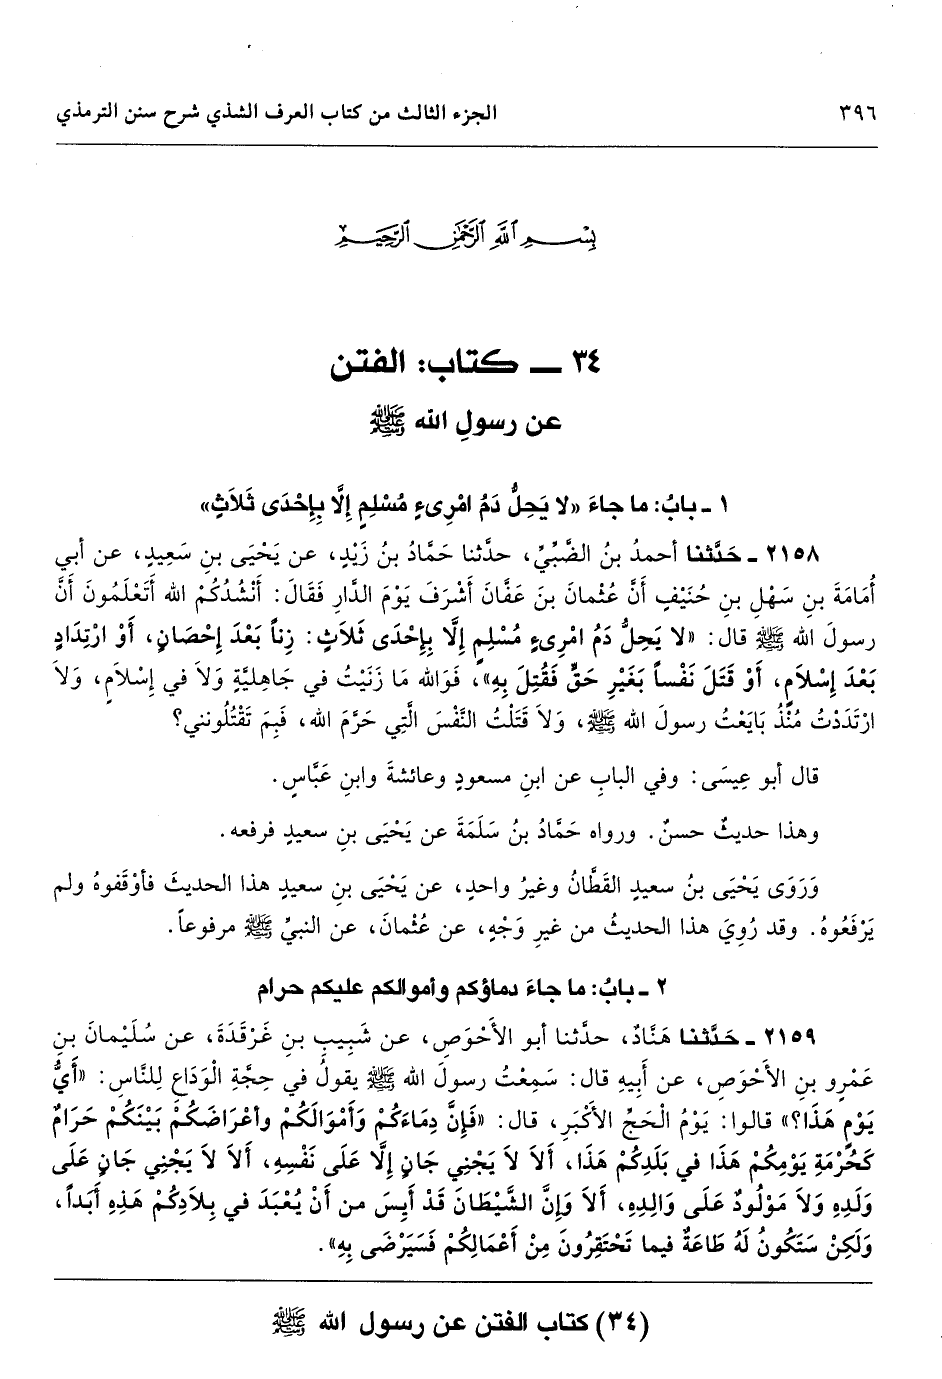 ٣٩٦ الجزء الثالث من كتاب العرف الشذي شرح سنن الترمذي
بِسْمِ اللَّهِ الرَّحْمَٰنِ الرَّحِيمِ
٣٤ ـ كتاب: الفتن
عن رسولِ الله ﷺ
١ ـ بابُ: ما جاءَ «لا يَحِلُّ دَمُ امْرِىءٍ مُسْلِمٍ إِلَّا بِإِحْدَى ثَلاَثٍ»
٢١٥٨ ـ حَدَّثنا أحمدُ بنُ الضَّبِّيِّ، حدَّثنا حَمَّادُ بنُ زَيْدٍ، عن يَحْيَى بنِ سَعِيدٍ، عن أبي
أُمَامَةَ بنِ سَهْلِ بنِ حُنَيْفٍ أَنَّ عُثْمانَ بنَ عَفَّانَ أَشْرَفَ يَوْمَ الدَّارِ فَقَالَ: أَنْشُدُكُمْ الله أَتَعْلَمُونَ أَنَّ
رسولَ الله ﷺ قال: «لا يَحِلُّ دَمُ امْرِىءٍ مُسْلِمٍ إِلَّا بِإِحْدَى ثَلاَثٍ: زِناً بَعْدَ إِحْصَانٍ، أَوْ ارْتِدَادٍ
بَعْدَ إِسْلَامٍ، أَوْ قَتَلَ نَفْساً بَغَيْرِ حَقٍّ فَقُتِلَ بِهِ»، فَوَالله مَا زَنَيْتُ في جَاهِليَّةٍ وَلاَ في إِسْلَامٍ، وَلاَ
ارْتَدَدْتُ مُنْذُ بَايَعْتُ رسولَ الله ﷺ، وَلاَ قَتَلْتُ النَّفْسَ الَّتِي حَرَّمَ الله، فَبِمَ تَقْتُلُونني؟
قال أبو عِيسَى: وفي البابِ عن ابنِ مسعودٍ وعائشةَ وابنِ عَبَّاسٍ.
وهذا حديثٌ حسنٌ. ورواه حَمَّادُ بنُ سَلَمَةَ عن يَحْيَى بنِ سعيدٍ فرفعه.
وَرَوَى يَحْيَى بنُ سعيدٍ القَطَّانُ وغيرُ واحدٍ، عن يَحْيَى بنِ سعيدٍ هذا الحديثَ فأوْقَفوهُ ولم
يَرْفَعُوهُ. وقد رُوِيَ هذا الحديثُ من غيرِ وَجْهٍ، عن عُثْمانَ، عن النبيِّ ﷺ مرفوعاً.
٢ ـ بابُ: ما جاءَ دماؤكم وأموالكم عليكم حرام
٢١٥٩ ـ حَدَّثنا هَنَّادٌ، حدَّثنا أبو الأَحْوَصِ، عن شَبِيبِ بنِ غَرْقَدَةَ، عن سُلَيْمانَ بنِ
عَمْرِو بنِ الأَحْوَصِ، عن أَبِيهِ قال: سَمِعْتُ رسولَ الله ﷺ يقولُ في حِجَّةِ الْوَدَاعِ لِلنَّاسِ: «أَيُّ
يَوْمٍ هَذَا؟» قالوا: يَوْمُ الْحَجِّ الأَكْبَرِ، قال: «فَإِنَّ دِمَاءَكُمْ وَأَمْوَالَكُمْ وأعْرَاضَكُمْ بَيْنَكُمْ حَرَامٌ
كَحُرْمَةِ يَوْمِكُمْ هَذَا في بَلَدِكُمْ هَذَا، أَلَا لاَ يَجْنِي جَانٍ إِلَّا عَلَى نَفْسِهِ، أَلاَ لاَ يَجْنِي جَانٍ عَلَى
وَلَدِهِ وَلاَ مَوْلُودٌ عَلَى وَالِدِهِ، أَلاَ وَإِنَّ الشَّيْطَانَ قَدْ أَيِسَ من أَنْ يُعْبَدَ في بِلاَدِكُمْ هَذِهِ أَبَداً،
وَلَكِنْ سَتَكُونُ لَهُ طَاعَةٌ فيما تَحْتَقِرُونَ مِنْ أَعْمَالِكُمْ فَسَيَرْضَى بِهِ».
(٣٤) كتاب الفتن عن رسول الله ﷺ